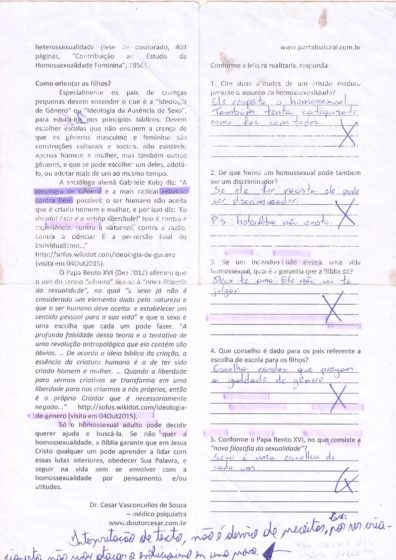 heterossexualidade (tese de doutorado, 403
páginas, "Contribuição ao Estudo da
Homossexualidade Feminina", 1950).
Como orientar os filhos?
Especialmente os pais de crianças
pequenas devem entender o que é a "Ideologia
de Gênero" ou "Ideologia da Ausência de Sexo",
para educá-los nos princípios bíblicos. Devem
escolher escolas que não ensinem a crença de
que os gêneros masculino e feminino são
construções culturais e sociais, não existindo
apenas homem e mulher, mas também outros
gêneros, e que se pode escolher um deles, adotá-
lo, ou adotar mais de um ao mesmo tempo.
A socióloga alemã Gabriele Kuby diz: "A
ideologia de Gênero é a mais radical rebelião
contra Deus possível: o ser humano não aceita
que é criado homem e mulher, e por isso diz: 'Eu
decido! Esta é a minha liberdade!' Isso é contra a
experiência, contra a natureza, contra a razão,
contra a ciência! É a perversão final do
individualismo..."
http://sofos.wikidot.com/ideologia-de-genero
(visita em 04Out2015).
O Papa Bento XVI (Dez 2012) afirmou que
o uso do termo "gênero"
da sexualidade", na qual "o sexo já não é
considerado um elemento dado pela natureza e
que o ser humano deve aceitar e estabelecer um
sentido pessoal para a sua vida" e que o sexo é
uma escolha que cada um pode fazer. "A
profunda falsidade dessa teoria e a tentativa de
uma revolução antropológica que ela contém são
óbvias. ... De acordo a ideia bíblica da criação, a
essência da criatura humana é a de ter sido
criada homem e mulher. ... Quando a liberdade
para sermos criativos se transforma em uma
liberdade para nos criarmos a nós próprios, então
é o próprio Criador que é necessariamente
negado..." http://sofos.wikidot.com/ideologia-
de-genero (visita em 04Out2015).
Só o homossexual adulto pode decidir
querer ajuda e buscá-la. Se não quer a
homossexualidade, a Bíblia garante que em Jesus
Cristo qualquer um pode aprender a lidar com
essas lutas interiores, obedecer Sua Palavra, e
seguir na vida sem se envolver com a
homossexualidade por pensamento e/ou
atitudes.
Dr. Cesar Vasconcellos de Souza
– médico psiquiatra
www.doutorcesar.com.br
www.portalnatural.com.br
Conforme a leitura realizada, responda:
1. Cite duas atitudes de um cristão maduro
perante o assunto da homossexualidade?
Ele respeita o homossexual
Também tenta
como faz com todos
2. De que forma um homossexual pode também
ser um discriminador?
Se ele for racista ele pode
ser discriminador.
P.S: heterofobia não existe.
3. Se um indivíduo não deseja uma vida
homossexual, qual é a garantia que a Bíblia dá?
Deus te ama. Ele não vai te
julgar.
4. Que conselho é dado para os pais referente a
escolha de escola para os filhos?
Escolha escolas que pregam
a igualdade de gênero
5. Conforme o Papa Bento XVI, no que consiste a
"nova filosofia da sexualidade"?
Sexo é uma escolha de
cada um.
Interpretação de texto, não é desvio de preceitos,